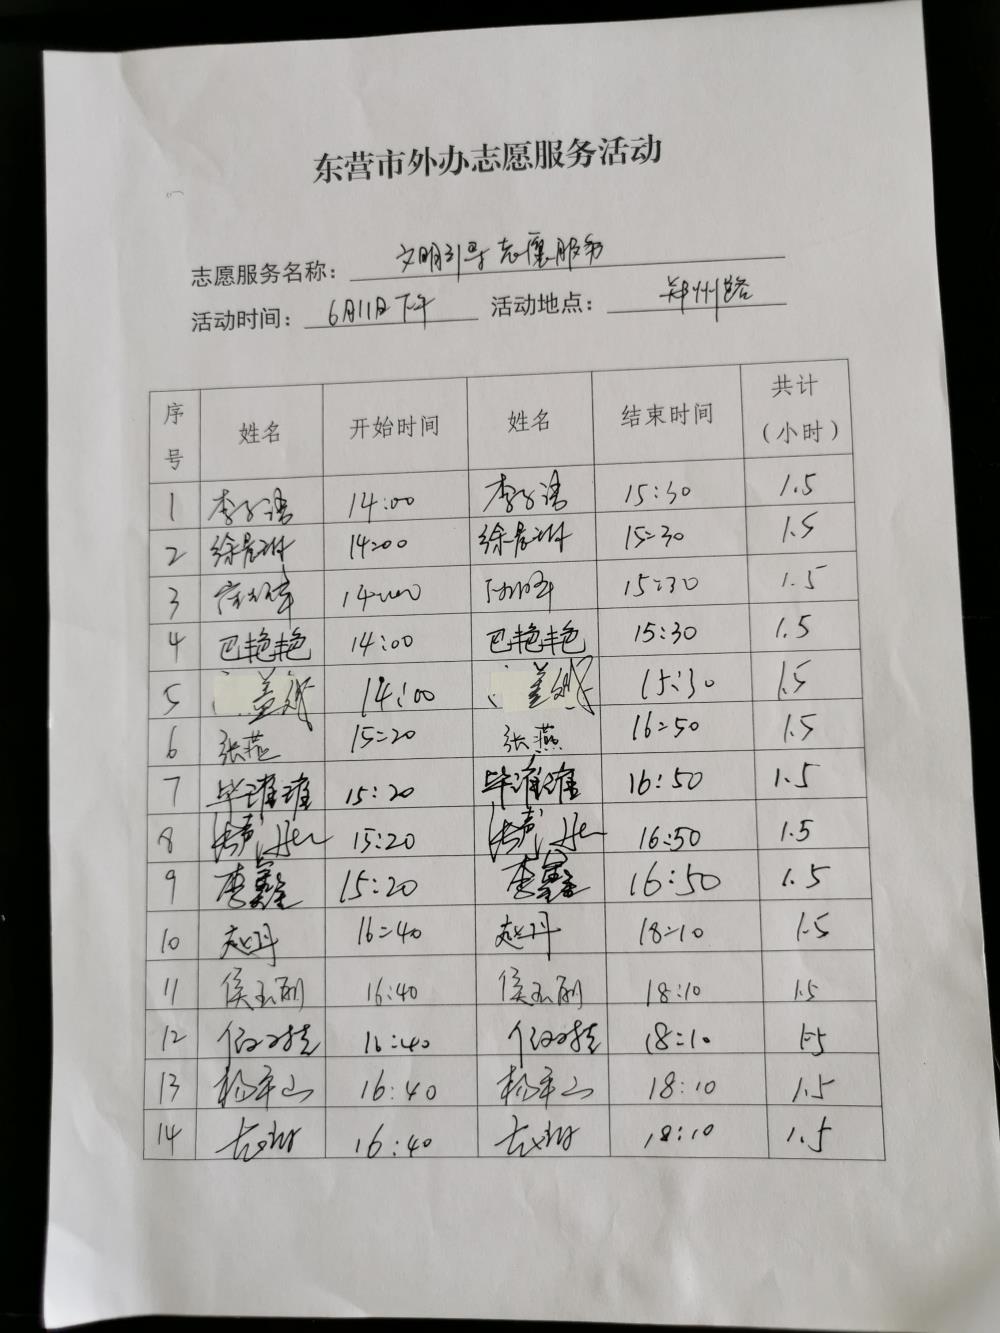 东营市外办志愿服务活动
志愿服务名称： 文明引导志愿服务
活动时间： 6月11日下午 活动地点： 郑州路
序号 姓名 开始时间 姓名 结束时间 共计（小时）
1 李子语 14:00 李子语 15:30 1.5
2 徐晨琳 14:00 徐晨琳 15:30 1.5
3 14:00 15:30 1.5
4 巴艳艳 14:00 巴艳艳 15:30 1.5
5 14:00 15:30 1.5
6 张燕 15:20 张燕 16:50 1.5
7 毕潍潍 15:20 毕潍潍 16:50 1.5
8 15:20 16:50 1.5
9 李鑫 15:20 李鑫 16:50 1.5
10 赵丹 16:40 赵丹 18:10 1.5
11 侯玉丽 16:40 侯玉丽 18:10 1.5
12 16:40 18:10 1.5
13 杨平山 16:40 杨平山 18:10 1.5
14 16:40 18:10 1.5